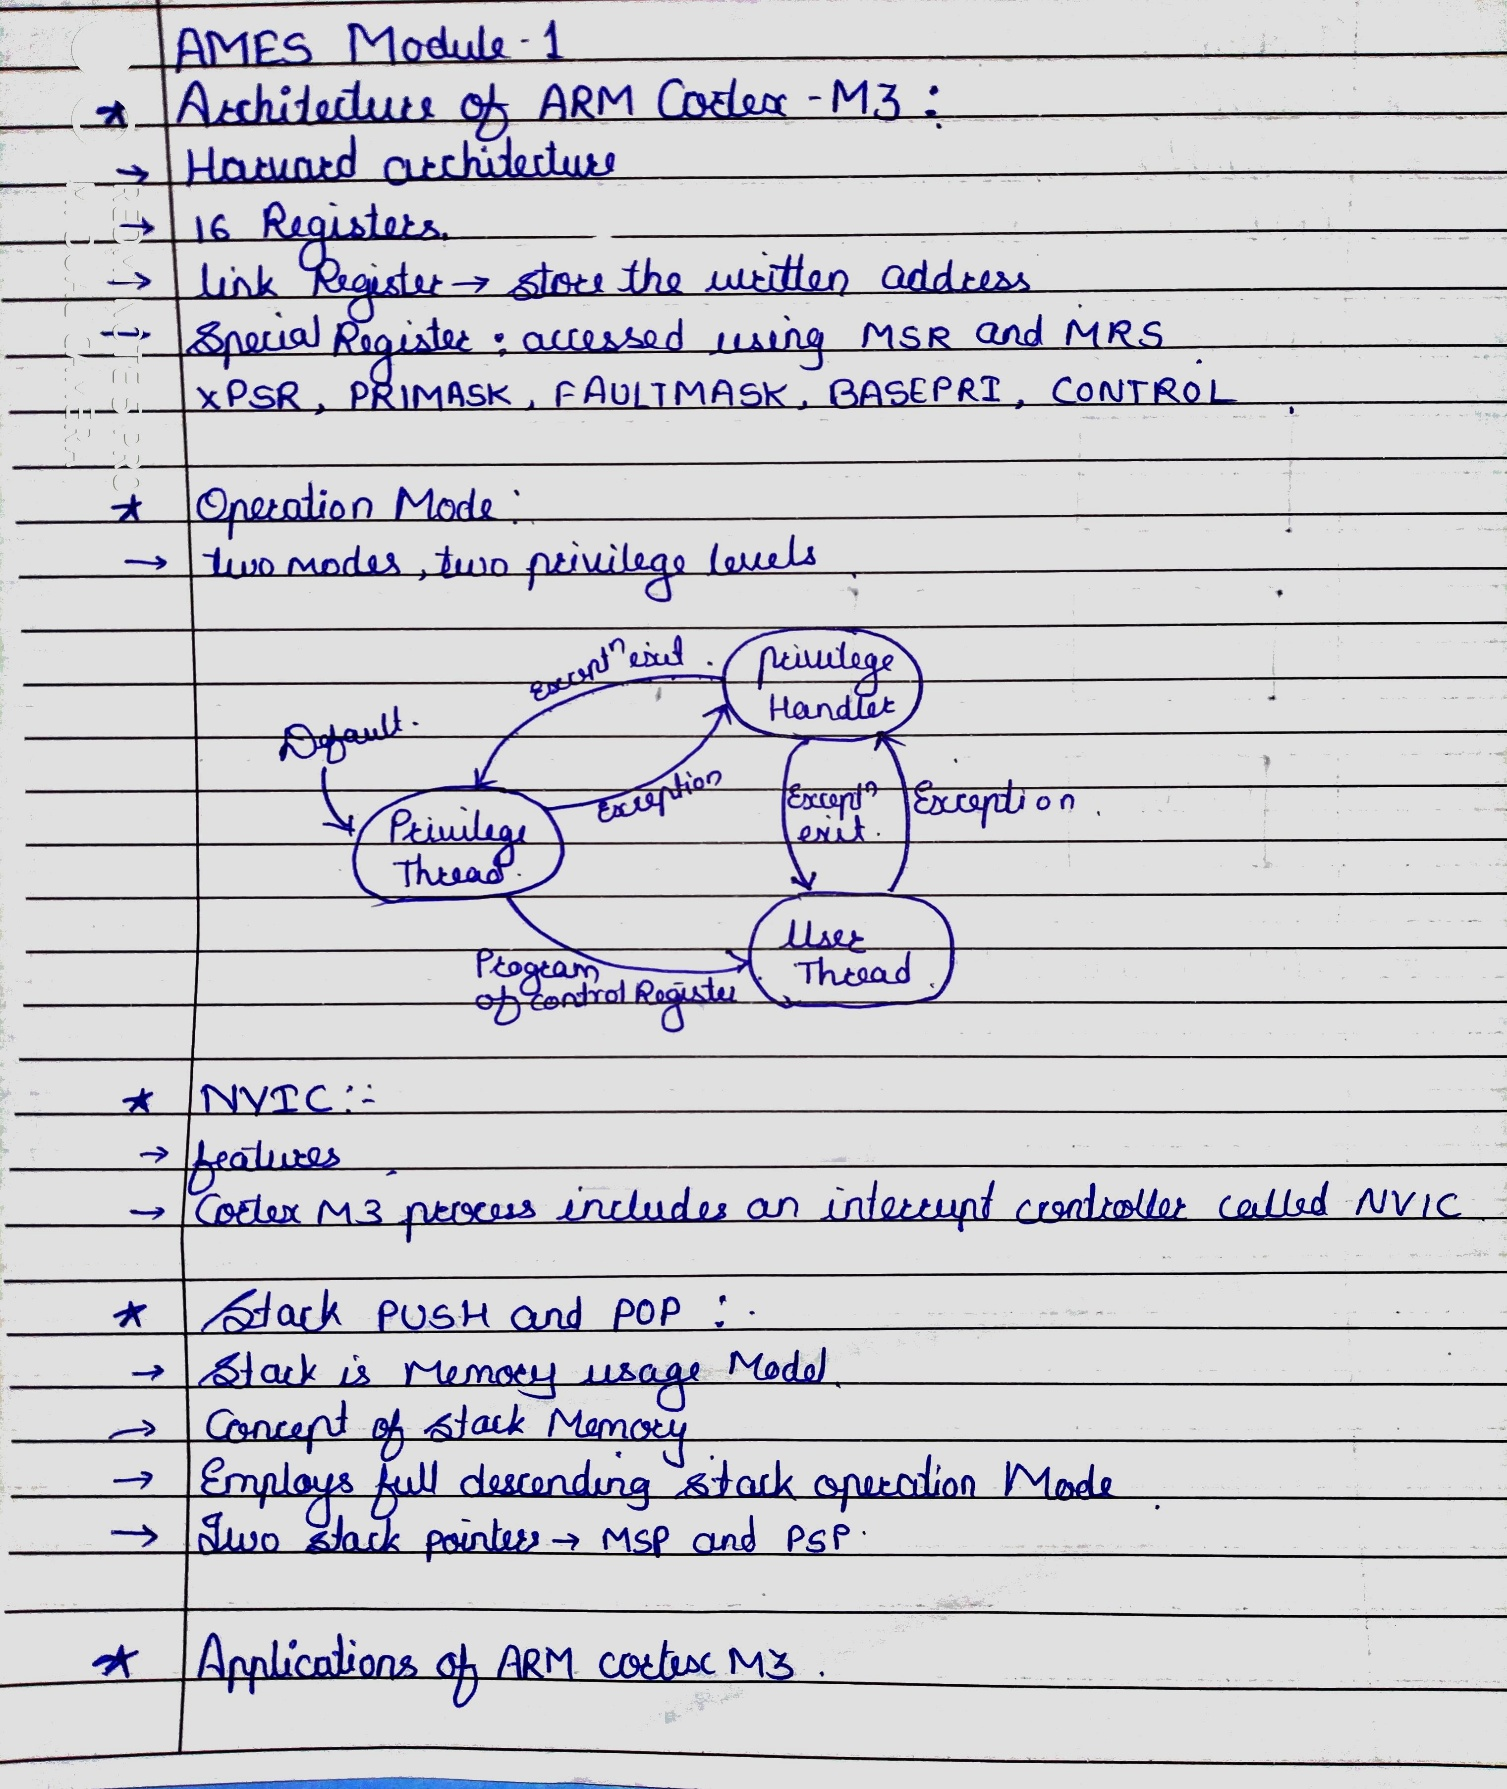 AMES Module-1
* Architecture of ARM Cortex-M3:
→ Harvard architecture
→ 16 Registers.
→ link Register → store the written address
→ Special Register : accessed using MSR and MRS
xPSR, PRIMASK, FAULTMASK, BASEPRI, CONTROL
* Operation Mode:
→ two modes, two privilege levels
Exceptⁿ exit.
Privilege
Handler
Default.
Exception
Exceptⁿ
exit.
Exception
Privilege
Thread.
User
Thread
Program
of control Register
* NVIC:-
→ features
→ Cortex M3 process includes an interrupt controller called NVIC
* Stack PUSH and POP :
→ Stack is Memory usage Model.
→ Concept of stack Memory
→ Employs full descending stack operation Mode
→ Two stack pointers → MSP and PSP.
* Applications of ARM cortex M3.